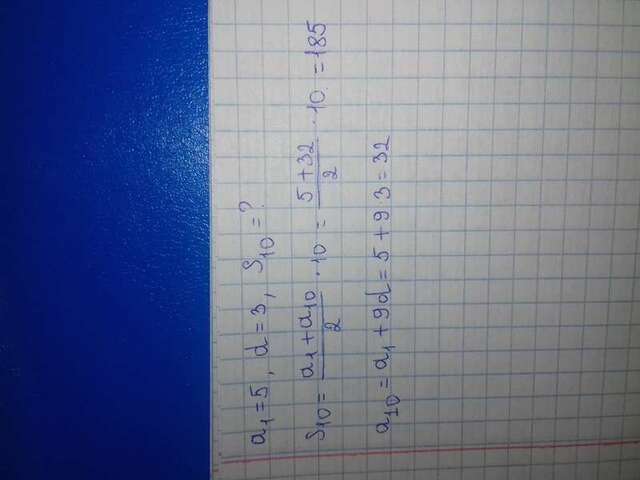 a₁ = 5, d = 3, S₁₀ = ?
S₁₀ = (a₁ + a₁₀)/2 · 10 = (5 + 32)/2 · 10 = 185
a₁₀ = a₁ + 9d = 5 + 9 · 3 = 32